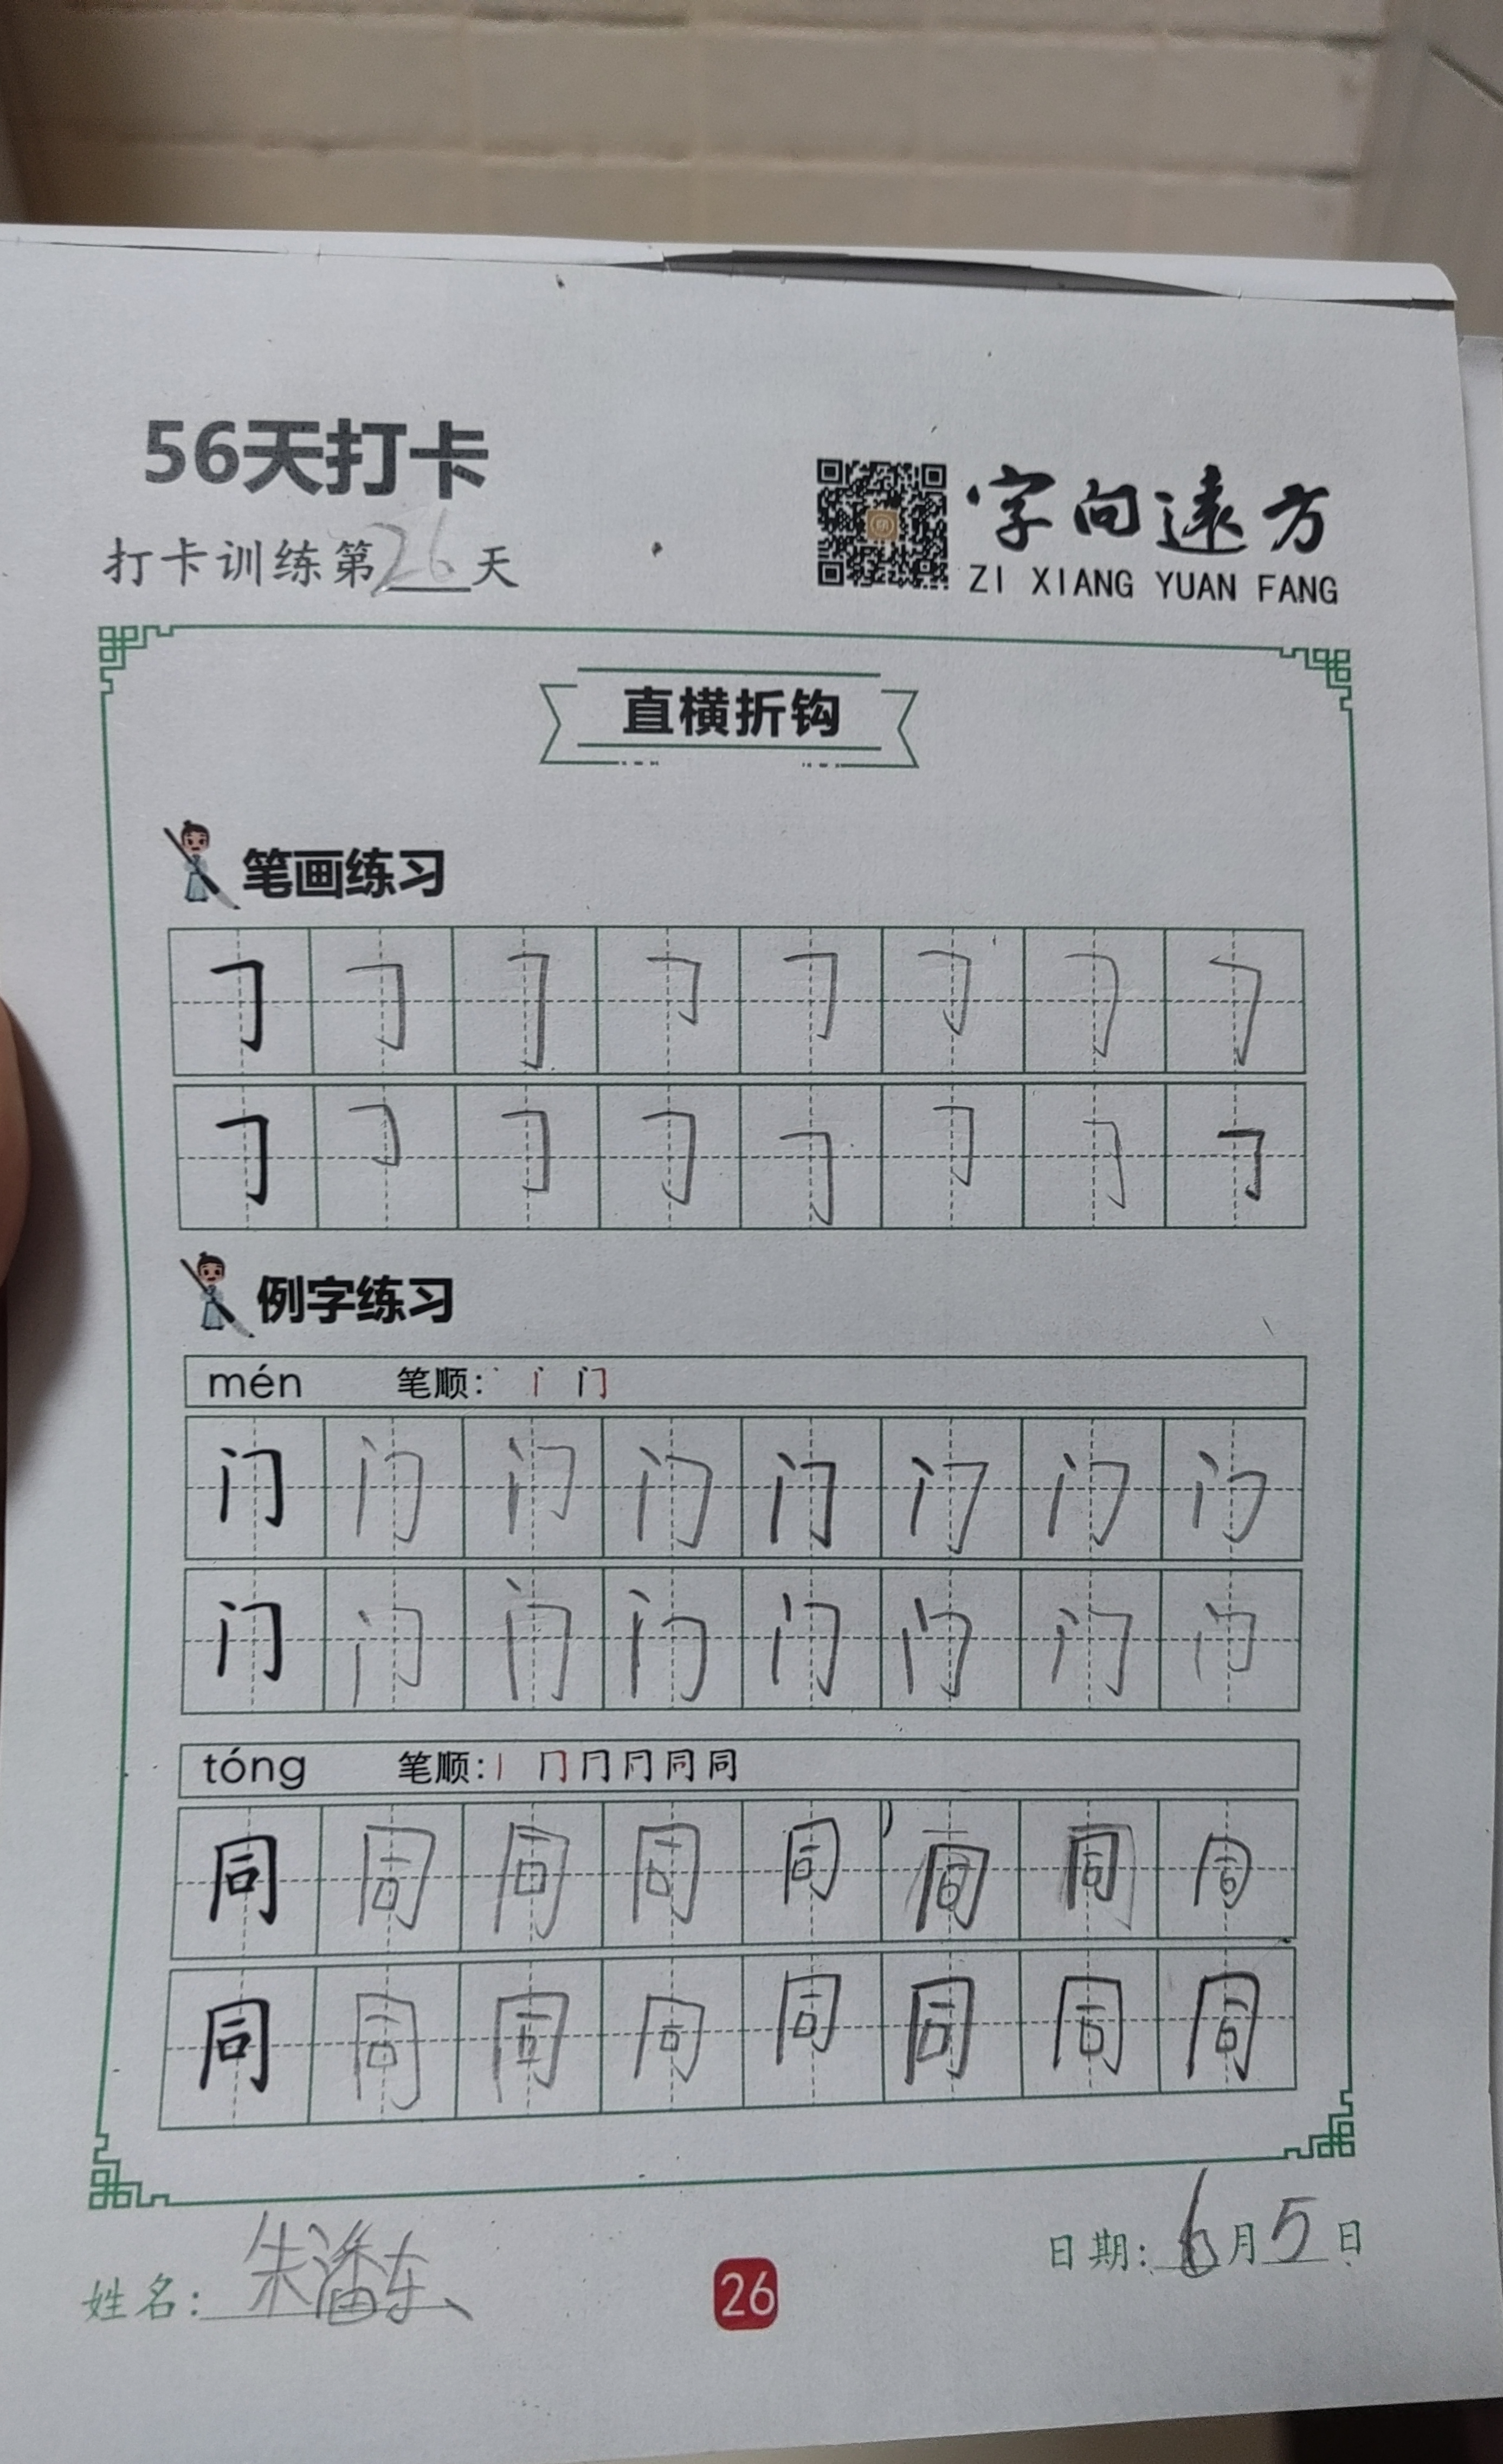 56天打卡
打卡训练第26天
字向遠方
ZI XIANG YUAN FANG
直横折钩
笔画练习
𠃌 𠃌 𠃌 𠃌 𠃌 𠃌 𠃌 𠃌
𠃌 𠃌 𠃌 𠃌 𠃌 𠃌 𠃌 𠃌
例字练习
mén 笔顺: 丶 门
门 门 门 门 门 门 门 门
门 门 门 门 门 门 门 门
tóng 笔顺: 丨 冂 同 同
同 同 同 同 同 同 同 同
同 同 同 同 同 同 同 同
姓名: 朱潘东
26
日期: 6月5日